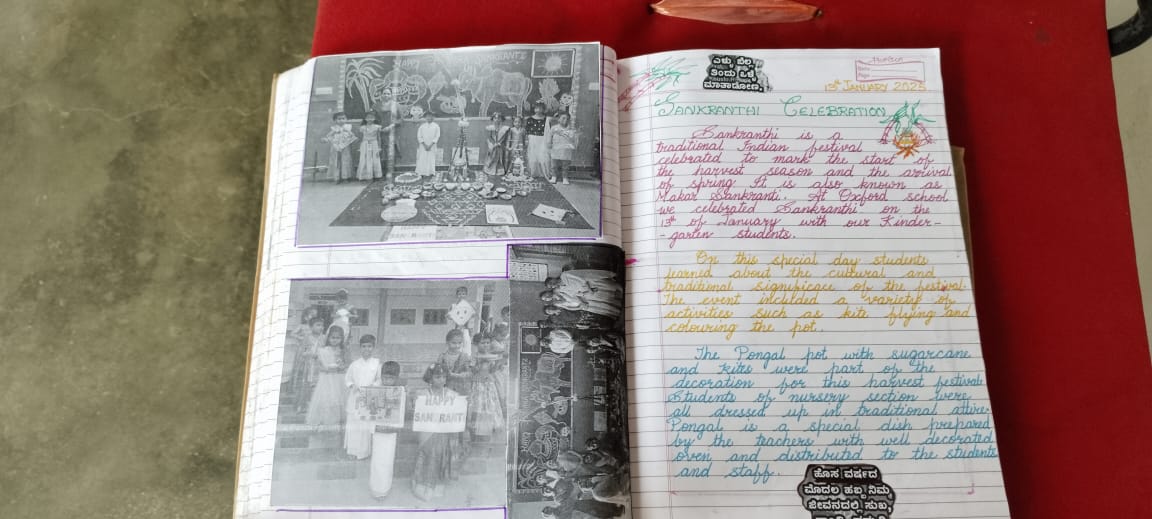 HAPPY
SANKRANTI
ಎಳ್ಳು ಬೆಲ್ಲ
ತಿಂದು ಒಳ್ಳೆ
ಮಾತಾಡೋಣ.
13th JANUARY 2025
SANKRANTHI CELEBRATION
Sankranthi is a
traditional Indian festival
celebrated to mark the start of
the harvest season and the arrival
of spring. It is also known as
Makar Sankranti. At Oxford school
we celebrated Sankranthi on the
13th of January with our Kinder-
-garten students.
On this special day students
learned about the cultural and
traditional significace of the festival.
The event included a variety of
activities such as kite flying and
colouring the pot.
The Pongal pot with sugarcane
and kites were part of the
decoration for this harvest festival.
Students of nursery section were
all dressed up in traditional attire.
Pongal is a special dish prepared
by the teachers with well decorated
oven and distributed to the students
and staff.
ಹೊಸ ವರ್ಷದ
ಮೊದಲ ಹಬ್ಬ ನಿಮ್ಮ
ಜೀವನದಲ್ಲಿ ಸುಖ,